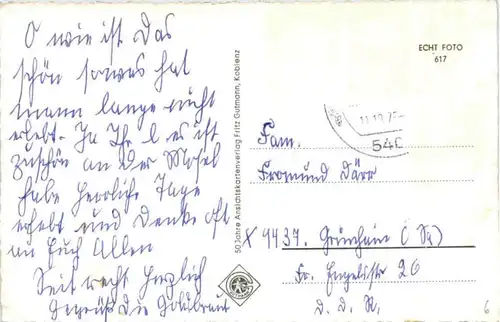 O wie ist das
schön sowas hat
mann lange nicht
erlebt. Ja Ihr l. es ist
zuschön an der Mosel
habe herrliche Tage
erlebt und denke oft
an Euch Allen
Seit recht herzlich
gegrüß die Goldbraut
50 Jahre Ansichtskartenverlag Fritz Gutmann, Koblenz
ECHT FOTO
617
54C
Fam.
Fromund Dürr
X 9437. Grünhain (Sa)
Fr. Engelsstr 26
D. D. R.
6